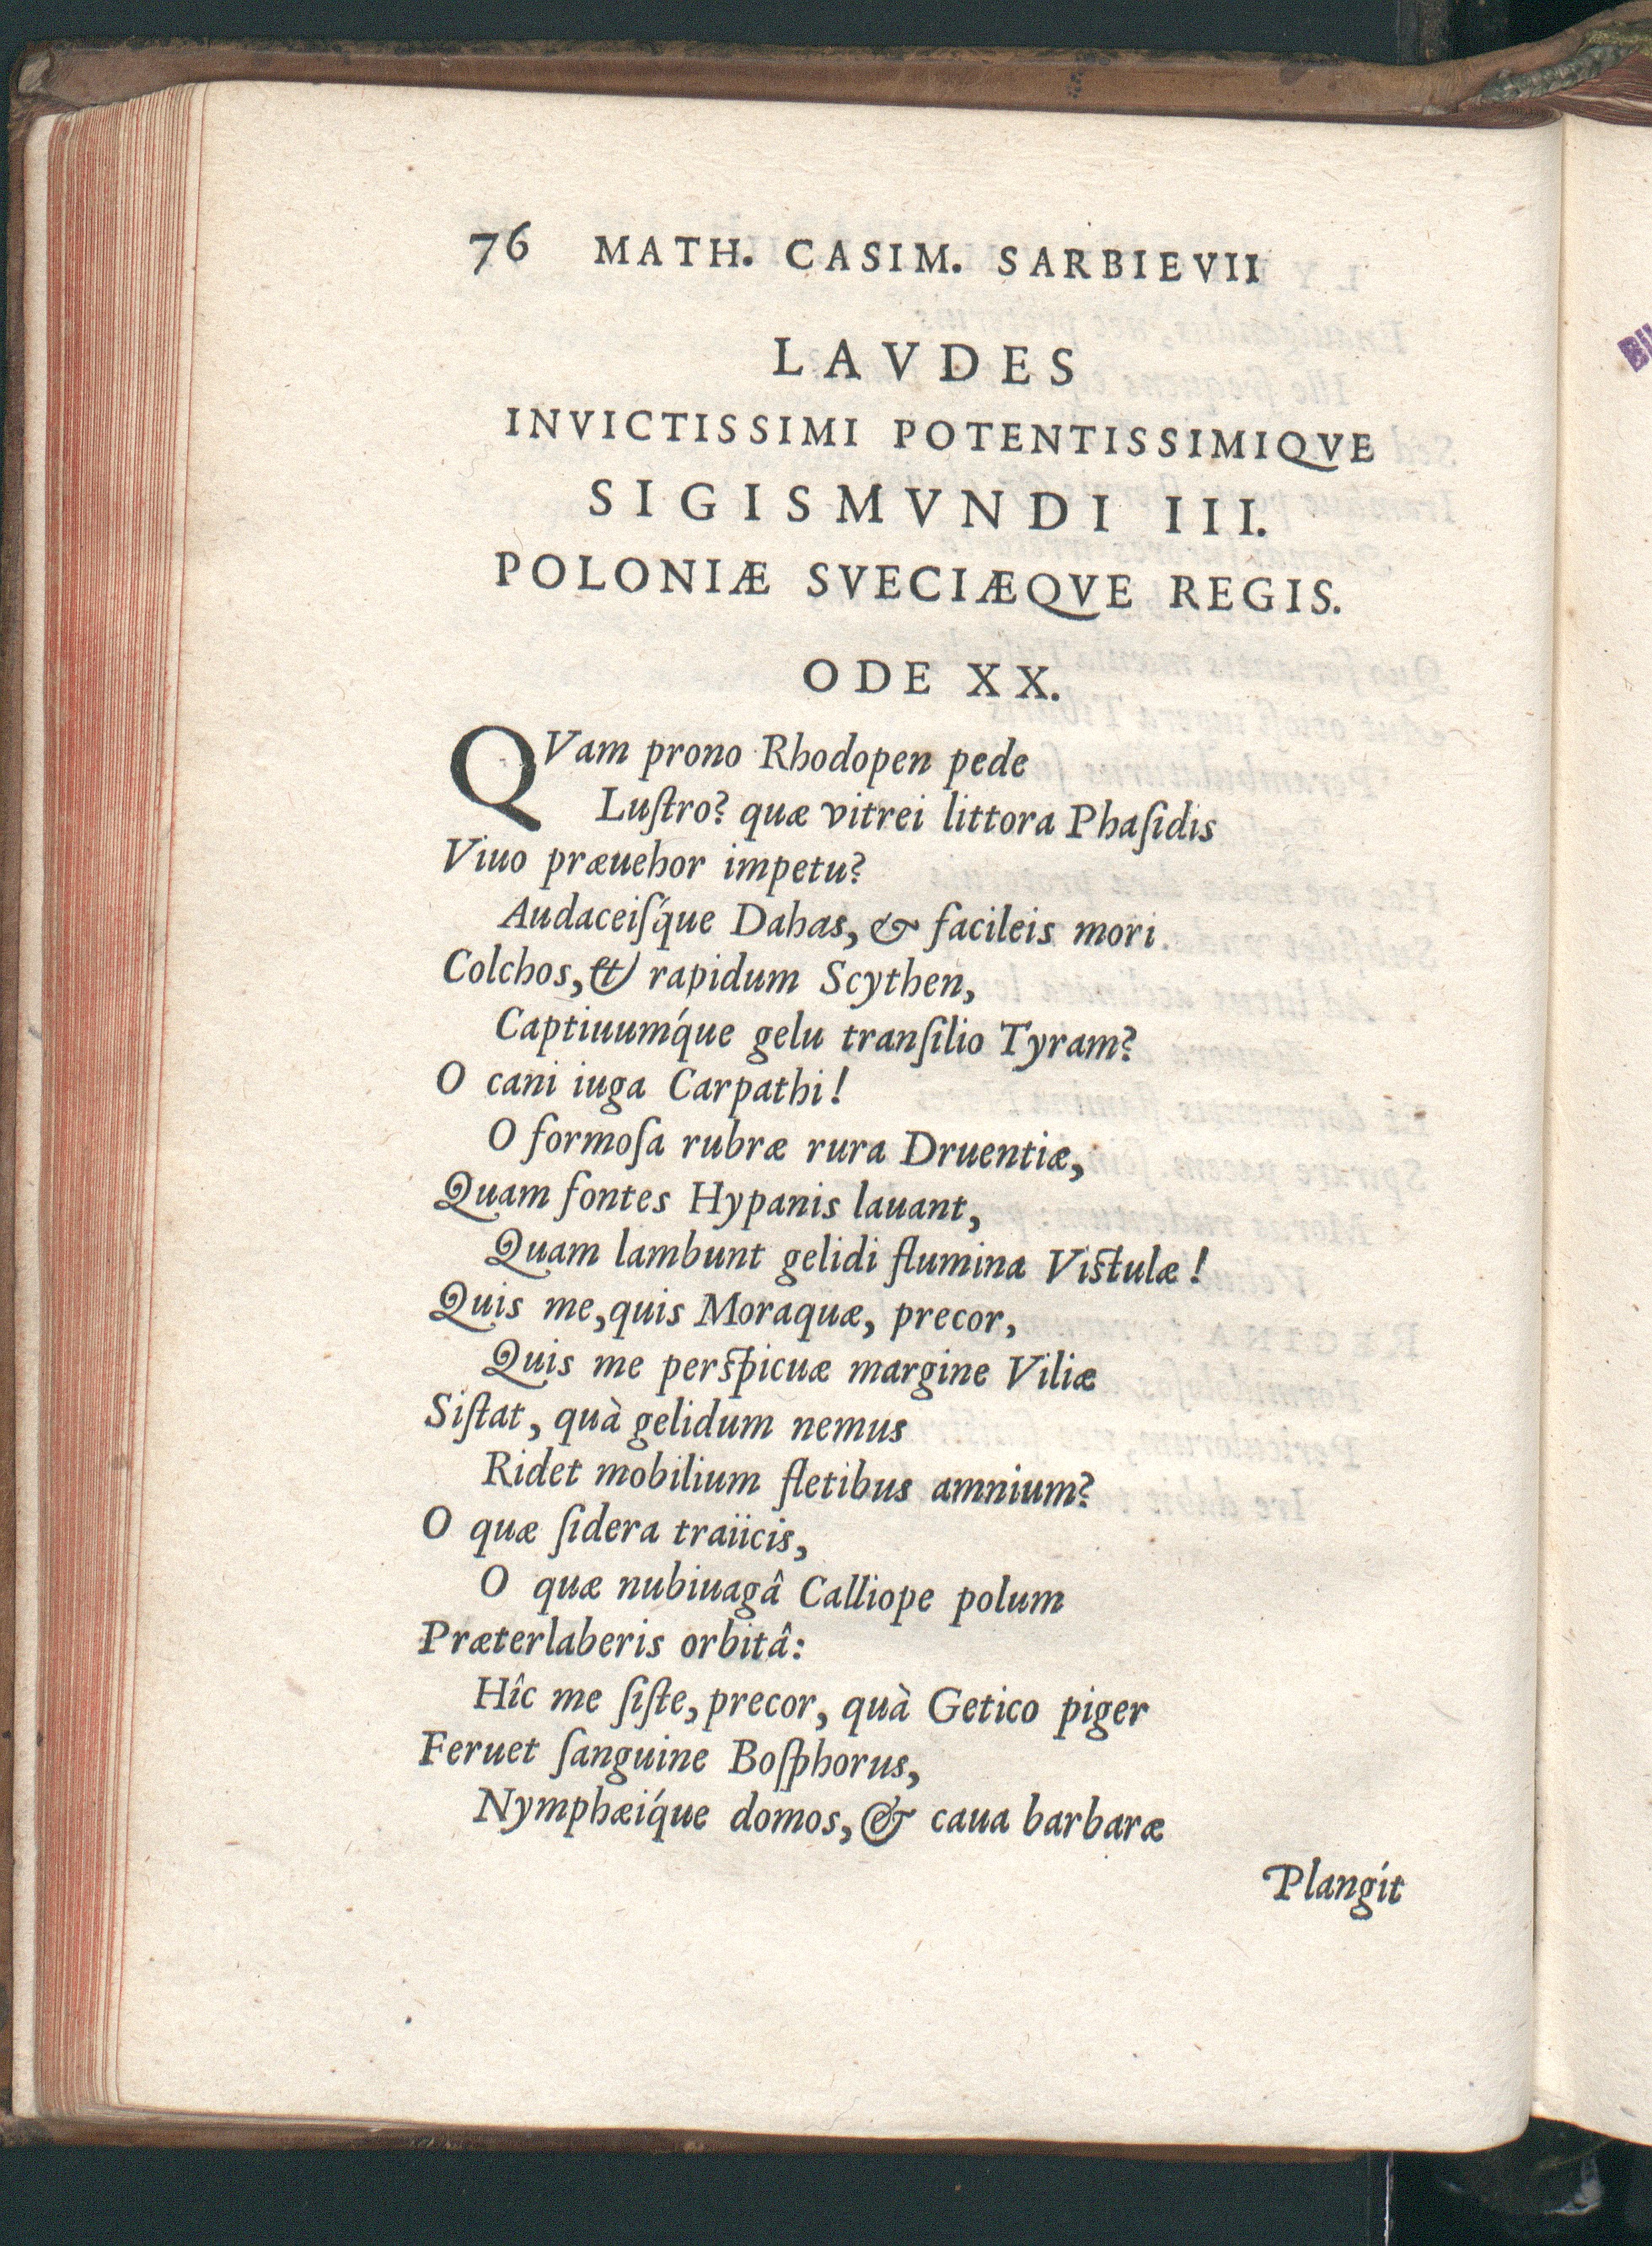 76 MATH. CASIM. SARBIEVII
LAVDES
INVICTISSIMI POTENTISSIMIQVE
SIGISMVNDI III.
POLONIÆ SVECIÆQVE REGIS.
ODE XX.
QVam prono Rhodopen pede
Luſtro? quæ vitrei littora Phaſidis
Viuo præuehor impetu?
Audaceiſq́ue Dahas, & facileis mori
Colchos, & rapidum Scythen,
Captiuumq́ue gelu tranſilio Tyram?
O cani iuga Carpathi!
O formoſa rubræ rura Druentiæ,
Quam fontes Hypanis lauant,
Quam lambunt gelidi flumina Viſtulæ!
Quis me, quis Moraquæ, precor,
Quis me perſpicuæ margine Viliæ
Siſtat, quà gelidum nemus
Ridet mobilium fletibus amnium?
O quæ ſidera traiicis,
O quæ nubiuagâ Calliope polum
Præterlaberis orbitâ:
Hîc me ſiſte, precor, quà Getico piger
Feruet ſanguine Boſphorus,
Nymphæiq́ue domos, & caua barbaræ
Plangit